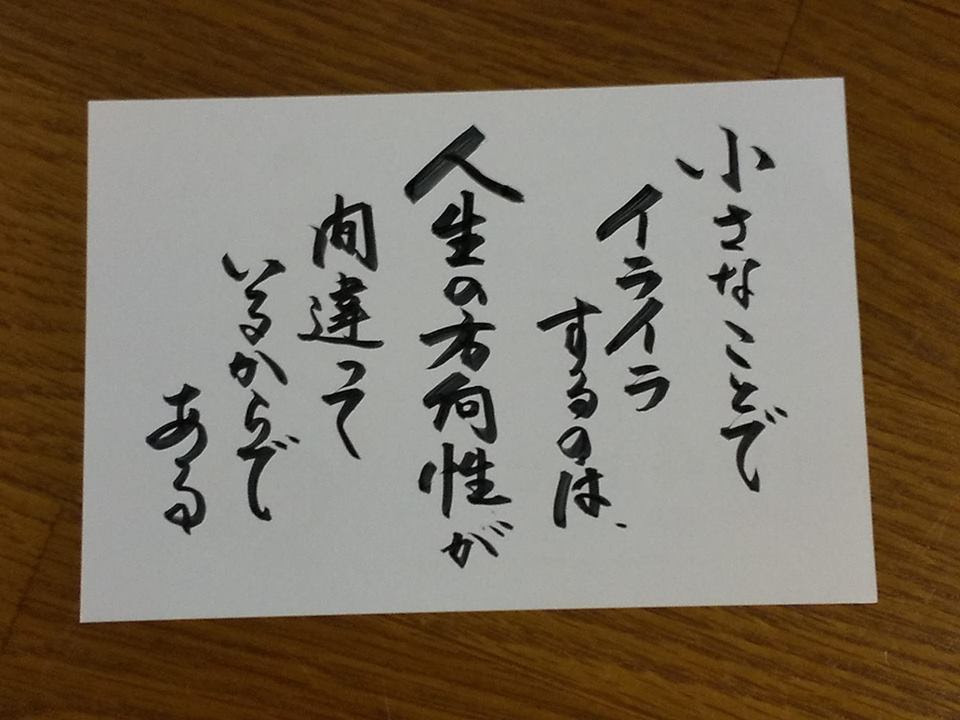 小さなことで
イライラ
するのは、
人生の方向性が
間違って
いるからで
ある